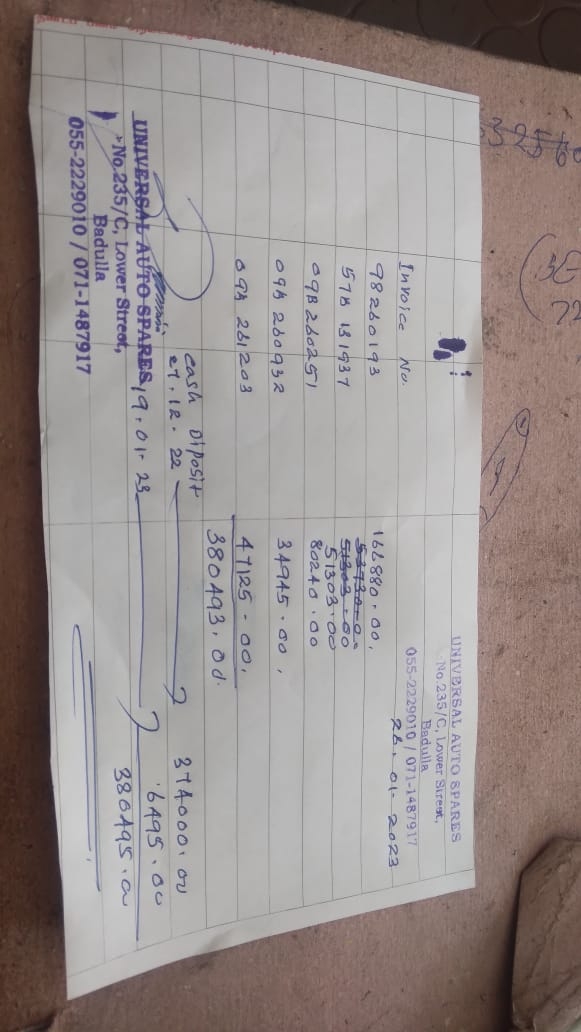 UNIVERSAL AUTO SPARES
No.235/C, Lower Street,
Badulla
055-2229010 / 071-1487917
26.01.2023
Invoice No.
98260193 166880.00,
51303.00
57B 131937 51303.00
09B260251 80240.00
09B 260932 34945.00,
09B 261203 47125.00,
380493.00.
Cash Diposit
27.12.22 374000.00
19.01.23 6495.00
380495.00
UNIVERSAL AUTO SPARES
No.235/C, Lower Street,
Badulla
055-2229010 / 071-1487917